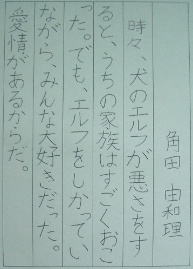 角田 由和理
時々、犬のエルフが悪さをす
ると、うちの家族はすごくおこ
った。でも、エルフをしかってい
ながら、みんな大好きだった。
愛情があるからだ。